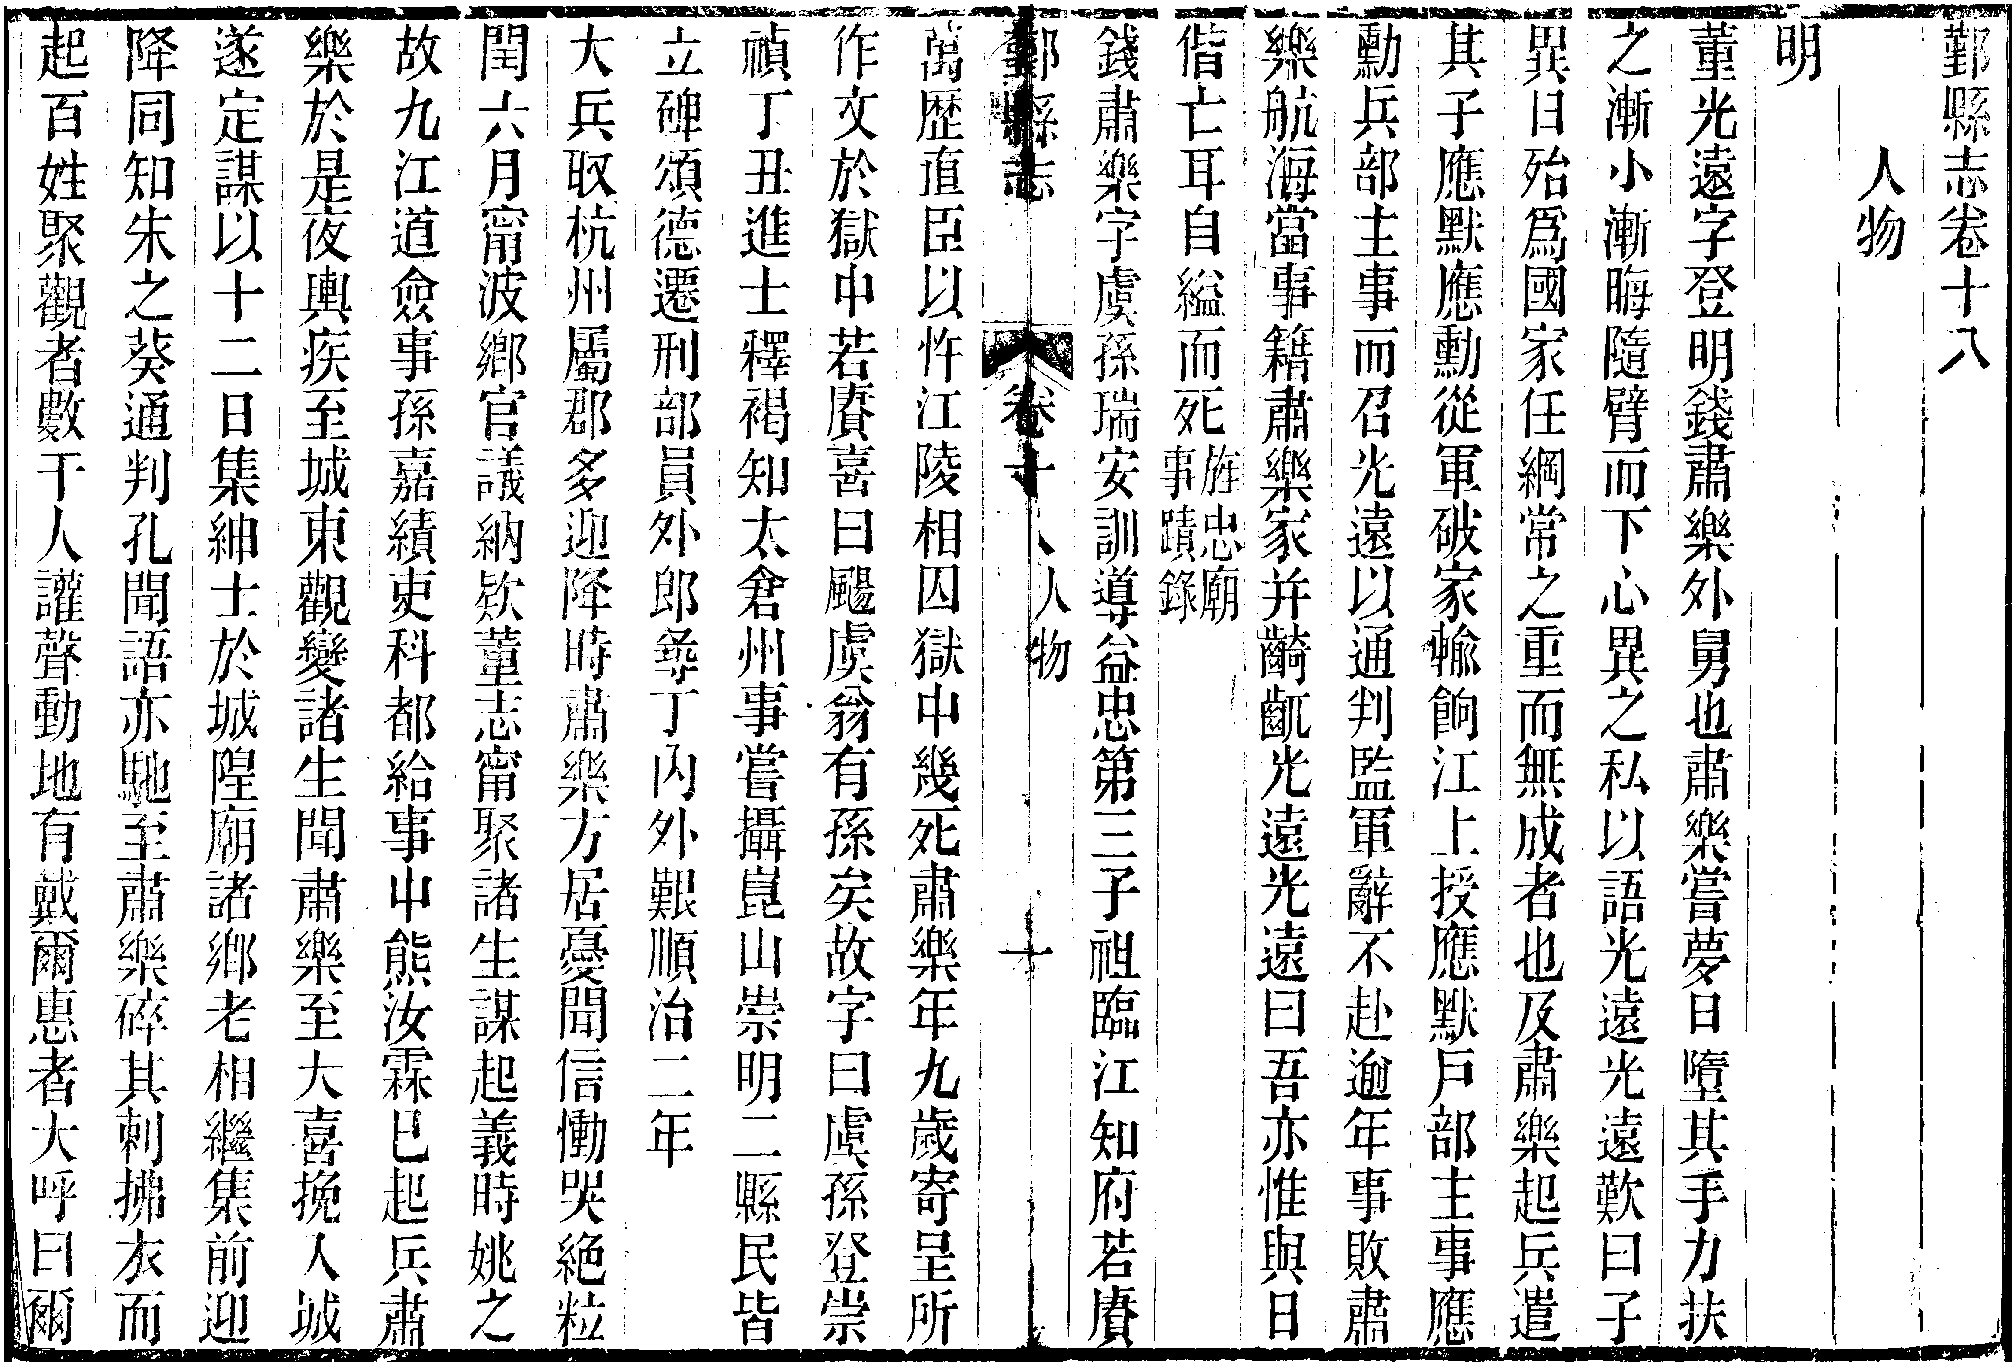 鄞縣志卷十八
人物
明
董光遠字登明錢肅樂外舅也肅樂嘗夢日墮其手力扶
之漸小漸晦隨臂而下心異之私以語光遠光遠歎曰子
異日殆爲國家任綱常之重而無成者也及肅樂起兵遣
其子應默應勳從軍破家輸餉江上授應默戶部主事應
勳兵部主事而召光遠以通判監軍辭不赴逾年事敗肅
樂航海當事籍肅樂家并齮齕光遠光遠曰吾亦惟與日
偕亡耳自縊而死旌忠廟事蹟錄
錢肅樂字虞孫瑞安訓導益忠第三子祖臨江知府若賡
鄞縣志
卷十八人物
一
萬歷直臣以忤江陵相囚獄中幾死肅樂年九歲寄呈所
作文於獄中若賡喜曰颺虞翁有孫矣故字曰虞孫登崇
禎丁丑進士釋褐知太倉州事嘗攝崑山崇明二縣民皆
立碑頌德遷刑部員外郎尋丁內外艱順治二年
大兵取杭州屬郡多迎降時肅樂方居憂聞信慟哭絕粒
閏六月甯波鄉官議納欵董志甯聚諸生謀起義時姚之
故九江道僉事孫嘉績吏科都給事中熊汝霖已起兵肅
樂於是夜輿疾至城東觀變諸生聞肅樂至大喜挽入城
遂定謀以十二日集紳士於城隍廟諸鄉老相繼集前迎
降同知朱之葵通判孔聞語亦馳至肅樂碎其刺拂衣而
起百姓聚觀者數千人讙聲動地有戴爾惠者大呼曰爾